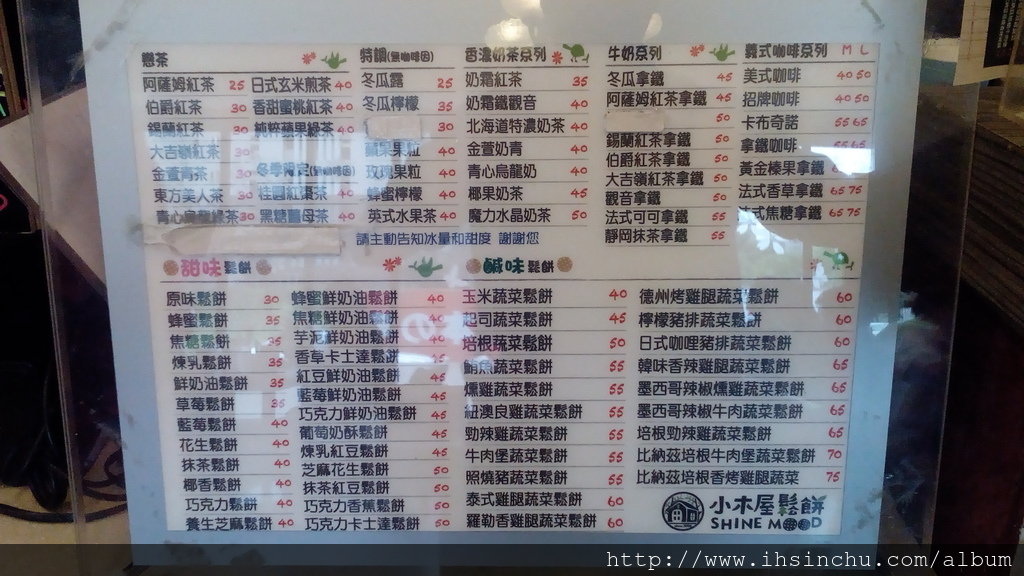 戀茶
阿薩姆紅茶 25
伯爵紅茶 30
錫蘭紅茶 30
大吉嶺紅茶 30
金萱青茶 30
東方美人茶 30
青心烏龍綠茶 30
日式玄米煎茶 40
香甜蜜桃紅茶 40
純粹蘋果綠茶 40
冬季限定(無咖啡因)
桂圓紅棗茶 40
黑糖薑母茶 40
特調(無咖啡因)
冬瓜露 25
冬瓜檸檬 35
30
蘋果果粒 40
玫瑰果粒 40
蜂蜜檸檬 40
英式水果茶 40
香濃奶茶系列
奶霜紅茶 35
奶霜鐵觀音 40
北海道特濃奶茶 40
金萱奶青 40
青心烏龍奶 40
椰果奶茶 45
魔力水晶奶茶 50
牛奶系列
冬瓜拿鐵 45
阿薩姆紅茶拿鐵 45
50
錫蘭紅茶拿鐵 50
伯爵紅茶拿鐵 50
大吉嶺紅茶拿鐵 50
觀音拿鐵 50
法式可可拿鐵 55
靜岡抹茶拿鐵 55
義式咖啡系列 M L
美式咖啡 40 50
招牌咖啡 40 50
卡布奇諾 55 65
拿鐵咖啡 55 65
黃金榛果拿鐵
法式香草拿鐵 65 75
法式焦糖拿鐵 65 75
請主動告知冰量和甜度 謝謝您
甜味鬆餅
原味鬆餅 30
蜂蜜鬆餅 35
焦糖鬆餅 35
煉乳鬆餅 35
鮮奶油鬆餅 35
草莓鬆餅 35
藍莓鬆餅 40
花生鬆餅 40
抹茶鬆餅 40
椰香鬆餅 40
巧克力鬆餅 40
養生芝麻鬆餅 40
蜂蜜鮮奶油鬆餅 40
焦糖鮮奶油鬆餅 40
芋泥鮮奶油鬆餅
香草卡士達鬆餅
紅豆鮮奶油鬆餅
藍莓鮮奶油鬆餅 45
巧克力鮮奶油鬆餅 45
葡萄奶酥鬆餅 45
煉乳紅豆鬆餅 45
芝麻花生鬆餅 50
抹茶紅豆鬆餅 50
巧克力香蕉鬆餅 50
巧克力卡士達鬆餅 50
鹹味鬆餅
玉米蔬菜鬆餅 40
起司蔬菜鬆餅 45
培根蔬菜鬆餅 50
鮪魚蔬菜鬆餅 55
燻雞蔬菜鬆餅 55
紐澳良雞蔬菜鬆餅 55
勁辣雞蔬菜鬆餅 55
牛肉堡蔬菜鬆餅 55
照燒豬蔬菜鬆餅 55
泰式雞腿蔬菜鬆餅 60
羅勒香雞腿蔬菜鬆餅 60
德州烤雞腿蔬菜鬆餅 60
檸檬豬排蔬菜鬆餅 60
日式咖哩豬排蔬菜鬆餅 60
韓味香辣雞蔬菜鬆餅 65
墨西哥辣椒燻雞蔬菜鬆餅 65
墨西哥辣椒牛肉蔬菜鬆餅 65
培根勁辣雞蔬菜鬆餅 65
比納茲培根牛肉堡蔬菜鬆餅 70
比納茲培根香烤雞腿蔬菜 75
小木屋鬆餅
SHINE MOOD
http://www.ihsinchu.com/album